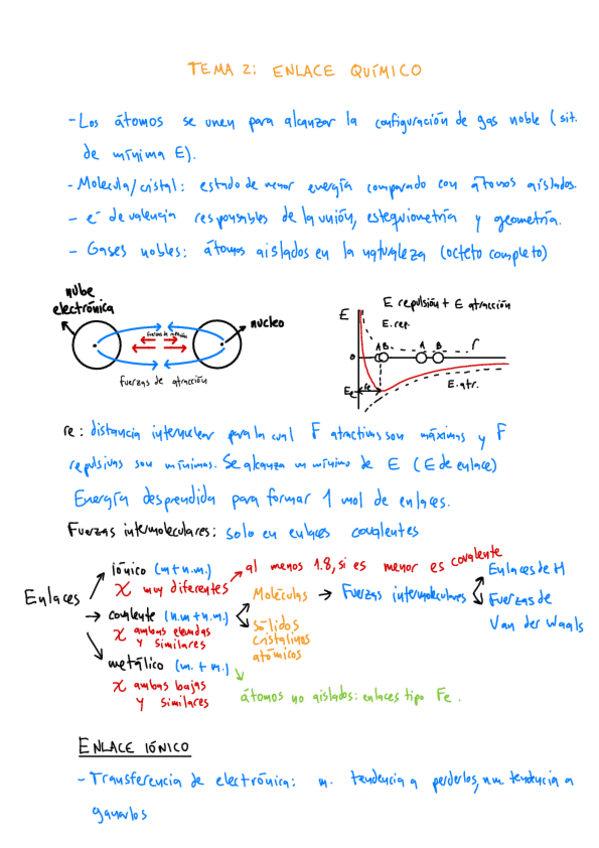 TEMA 2: ENLACE QUÍMICO
- Los átomos se unen para alcanzar la configuración de gas noble (sit.
de mínima E).
- Molécula/cristal: estado de menor energía comparado con átomos aislados.
- e⁻ de valencia responsables de la unión, estequiometría y geometría.
- Gases nobles: átomos aislados en la naturaleza (octeto completo)
nube
electrónica
nucleo
fuerzas de atracción
E repulsión + E atracción
E
E. rep.
A B
A
B
r
0
E. atr.
re: distancia internuclear para la cual F atractivas son máximas y F
repulsivas son mínimas. Se alcanza un mínimo de E (E de enlace)
Energía desprendida para formar 1 mol de enlaces.
Fuerzas intermoleculares: solo en enlaces covalentes
Enlaces
iónico (m + n.m.)
χ muy diferentes
al menos 1.8, si es menor es covalente
covalente (n.m + n.m.)
χ ambas elevadas
y similares
Moléculas
Fuerzas intermoleculares
Enlaces de H
Fuerzas de
Van der Waals
sólidos
cristalinos
atómicos
metálico (m. + m.)
χ ambas bajas
y similares
átomos no aislados: enlaces tipo Fe.
ENLACE IÓNICO
- Transferencia de electrónica: m. tendencia a perderlos, nm tendencia a
ganarlos